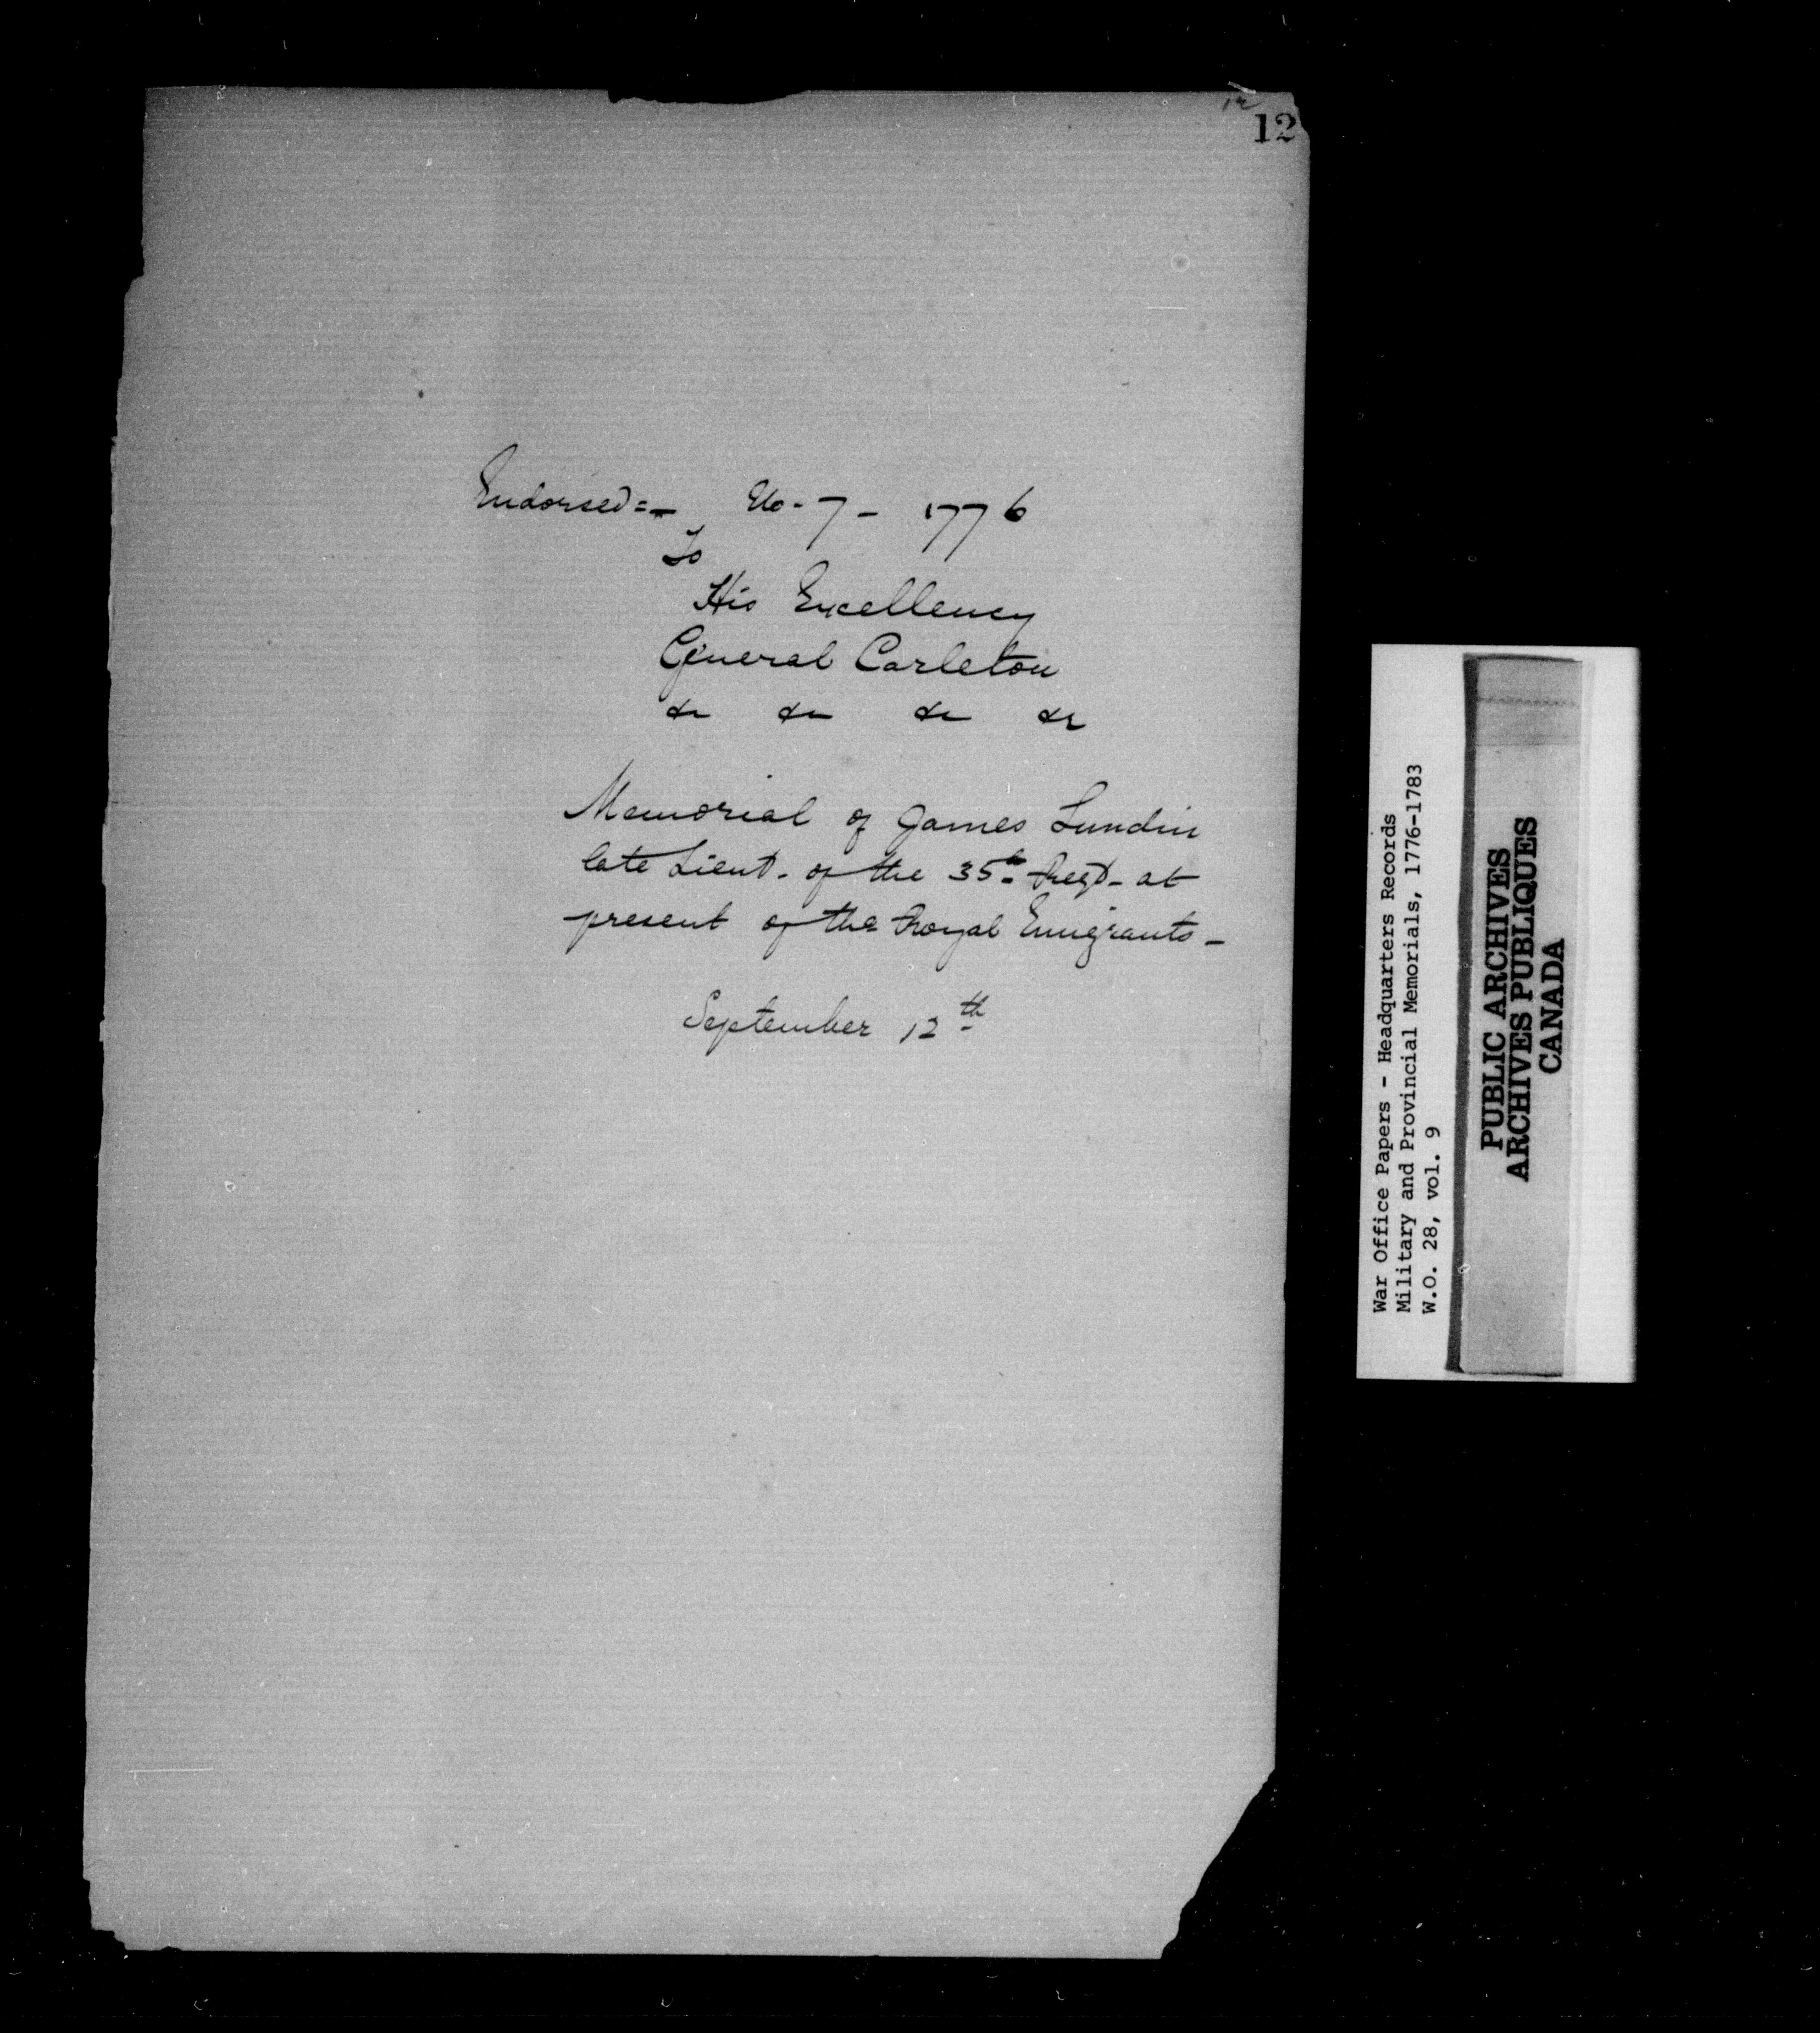 12
12
Endorsed=- No-7- 1776
To
His Excellency
General Carleton
&c &c &c &c
Memorial of James Lundin
late Lieut. of the 35th Regt- at
present of the Royal Emigrants-
September 12th
War Office Papers - Headquarters Records
Military and Provincial Memorials, 1776-1783
W.O. 28, vol. 9
PUBLIC ARCHIVES
ARCHIVES PUBLIQUES
CANADA